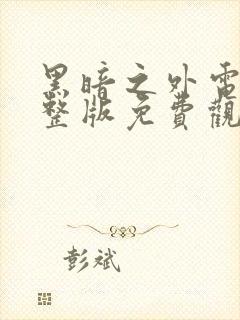 黑暗之外電
整版免費觀
彭斌